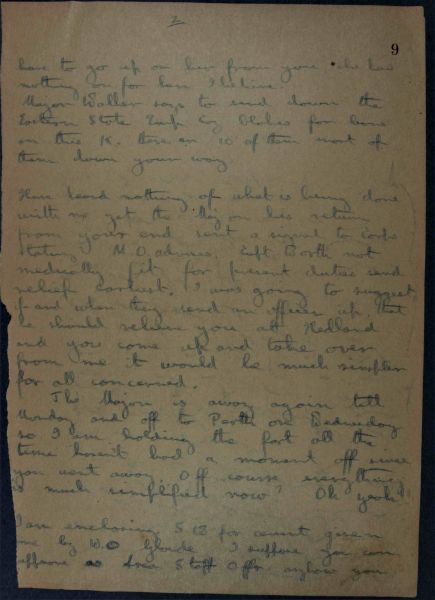 2
9
have to go up on her from you she has
nothing on for her I believe.
Major Waller says to send down the
Eastern State Emp Coy blokes for leave
on this K. there are 10 of them most of
them down your way
Have heard nothing of what is being done
with me yet the Maj on his return
from your end sent a signal to Corps
stating M.O. advises Capt Borth not
medically fit for present duties send
relief earliest. I was going to suggest
if and when they send an officer up that
he should relieve you at Hedland
and you come up and take over
from me it would be much simpler
for all concerned.
The Major is away again till
Monday and off to Perth on Wednesday
so I am holding the fort all the
time haven't had a moment off since
you went away. Off course everything
is much simplified now? Oh yeah!
I am enclosing S 13 for given
me by W.O. I suppose you can
approve as Area Staff Offr anyhow you